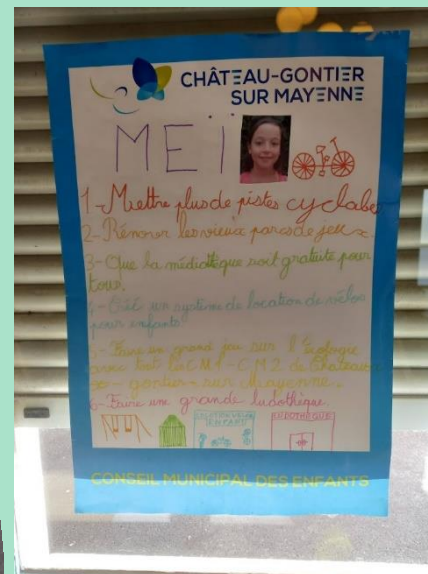 CHÂTEAU-GONTIER
SUR MAYENNE
MEÏ
1-Miettre plus de pistes cyclabe
2-Rénover les vieux parcs de jeux.
3-Que la médiatèque soit gratuite pour
tous.
4-Créé un système de location de vélos
pour enfants.
5-Faire un grand jeu sur l'écologie
avec tout les CM1-CM2 de Château
gontier-sur Mayenne.
6-Faire une grande ludothèque.
ENFANT
LUDOTHÈQUE
CONSEIL MUNICIPAL DES ENFANTS